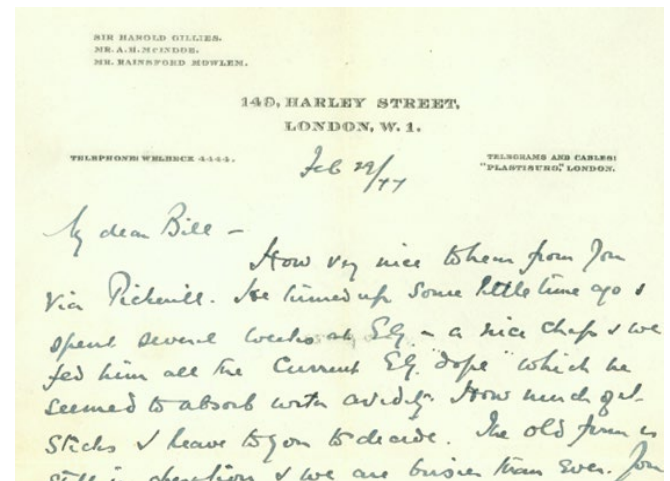 SIR HAROLD GILLIES.
MR. A. H. McINDOE.
MR. RAINSFORD MOWLEM.
149, HARLEY STREET,
LONDON, W. 1.
TELEPHONE: WELBECK 4444.
TELEGRAMS AND CABLES:
"PLASTISURG," LONDON.
Feb 29/44
My dear Bill –
How very nice to hear from you
via Pickerill. He turned up some little time ago &
spent several weeks at EG – a nice chap & we
fed him all the current EG. "dope" which he
seemed to absorb with avidity. How much of it
sticks I leave to you to decide. The old firm is
still in operation & we are busier than ever. You